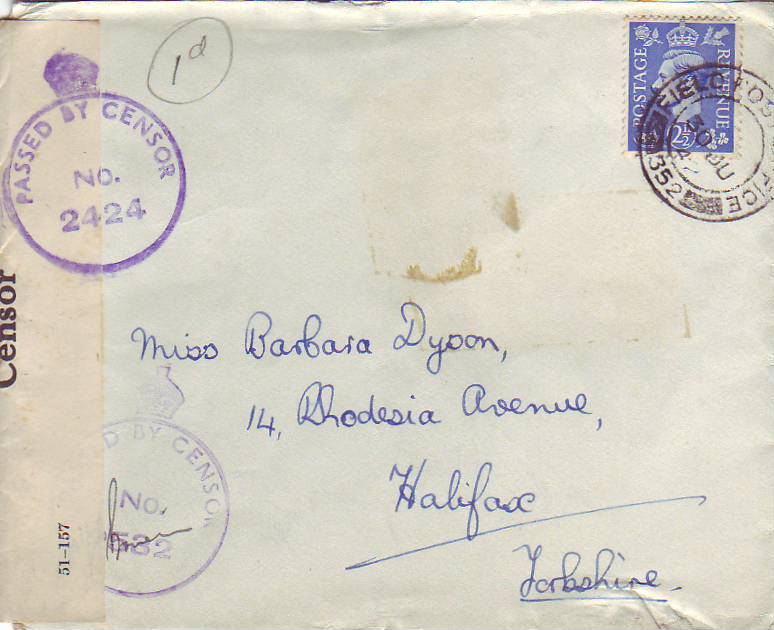 1d
POSTAGE REVENUE
2½
FIELD POST OFFICE
30 JU
352
PASSED BY CENSOR
No.
2424
Censor
Miss Barbara Dyson,
14, Rhodesia Avenue,
Halifax
Yorkshire.
D BY CENSOR
No.
532
51-157